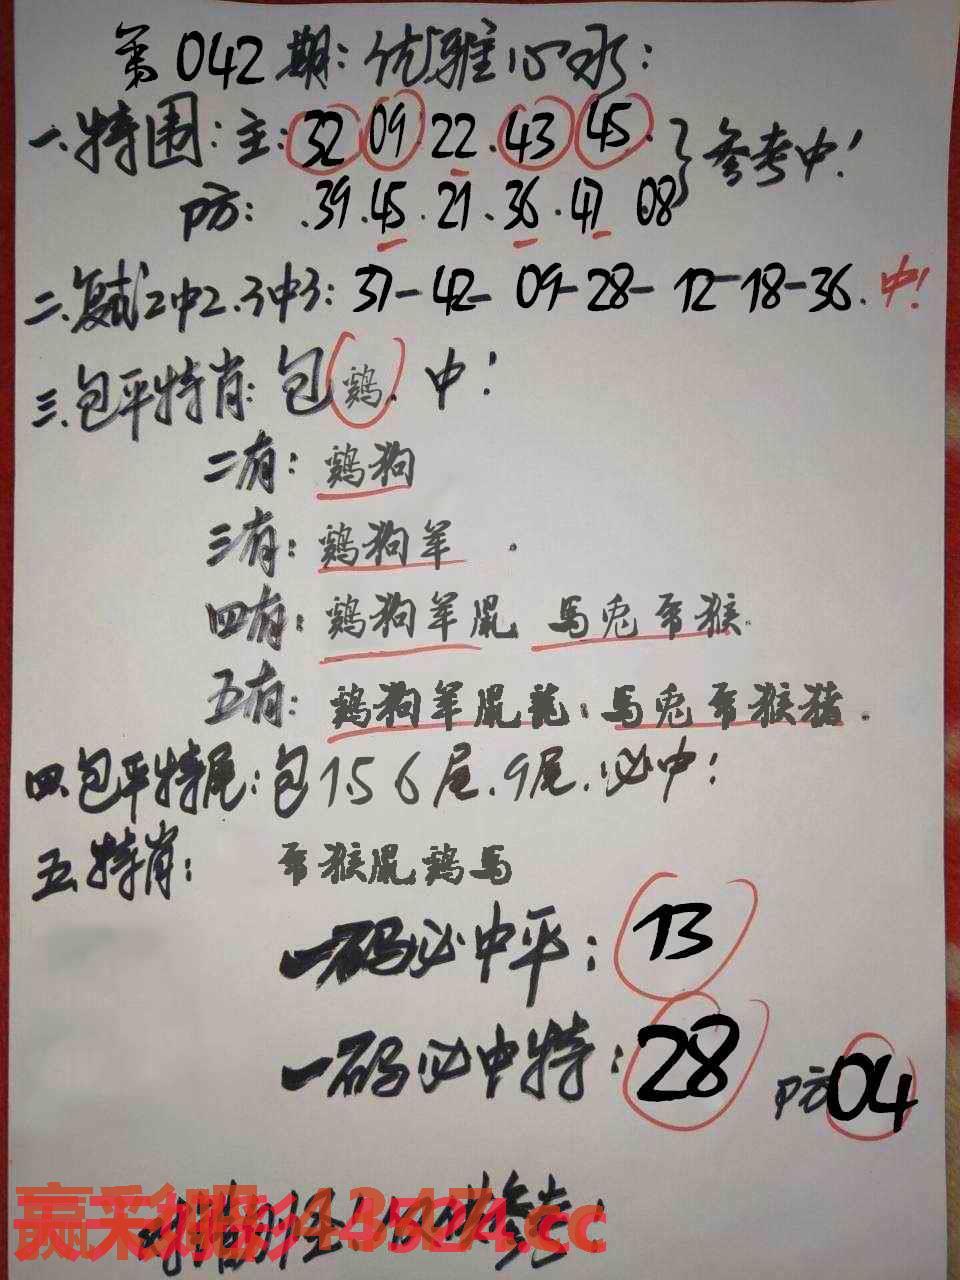 第042期:优雅心水:
一.特围:主:32 09 22.43 45.}参考中!
防:.39.45.21.36.47 08
二.复试2中2.3中3:37-42-09-28-12-18-36.中!
三.包平特肖:包鷄.中!
二有:鷄狗
三有:鷄狗羊.
四有:鷄狗羊鼠 馬兔 猴.
五有:鷄狗羊鼠龍:馬兔 猴豬.
四.包平特尾:包1.5 6尾.9尾.必中!
五.特肖: 猴鼠鷄馬
一码必中平:13
一码必中特:28 防04
赢彩吧 .cc